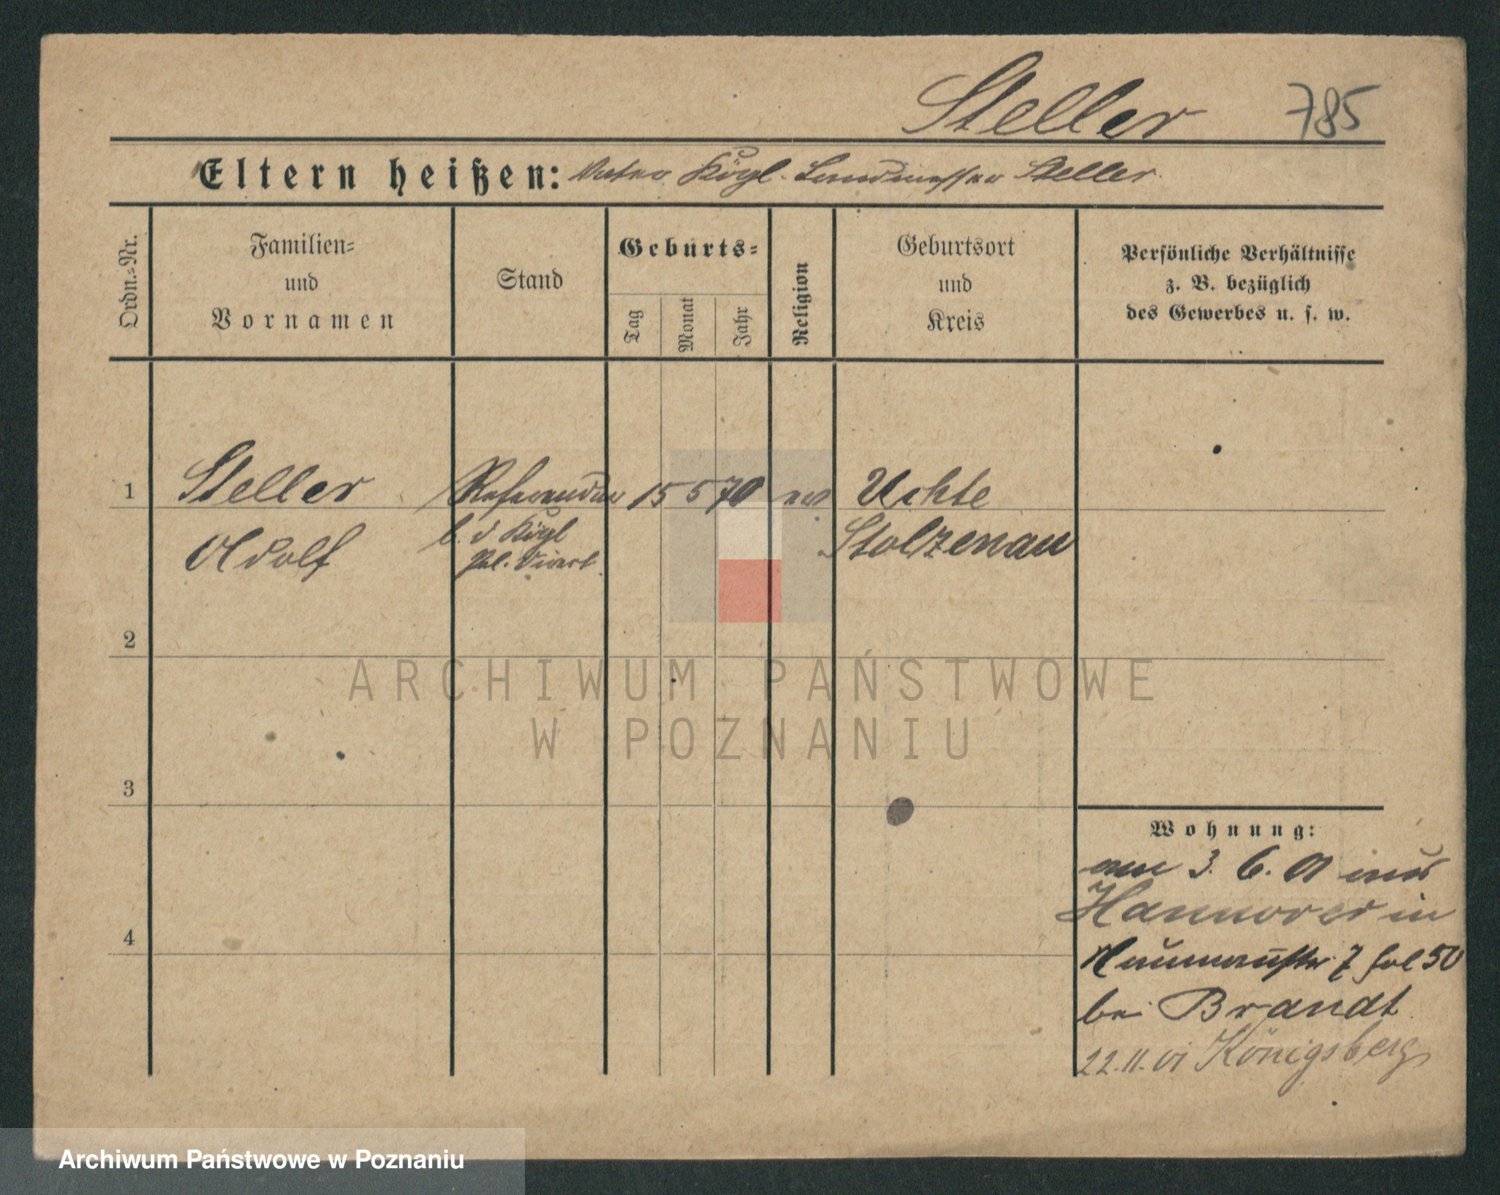 Steller 785
Eltern heißen: Vater Kögl. Landmesser Steller.
Ordn.-Nr.
Familien-
und
Vornamen
Stand
Geburts-
Tag
Monat
Jahr
Religion
Geburtsort
und
Kreis
Persönliche Verhältnisse
z. B. bezüglich
des Gewerbes u. s. w.
1 Steller Referendar 15 5 70 ev Uchte
Adolf b. d Kögl Stolzenau
Pol. Direct.
2
3
4
Wohnung:
am 3. 6. 01 aus
Hannover in
Naumannstr 7 Hol 50
bei Brandt
22.11.01 Königsberg
ARCHIWUM PAŃSTWOWE
W POZNANIU
Archiwum Państwowe w Poznaniu